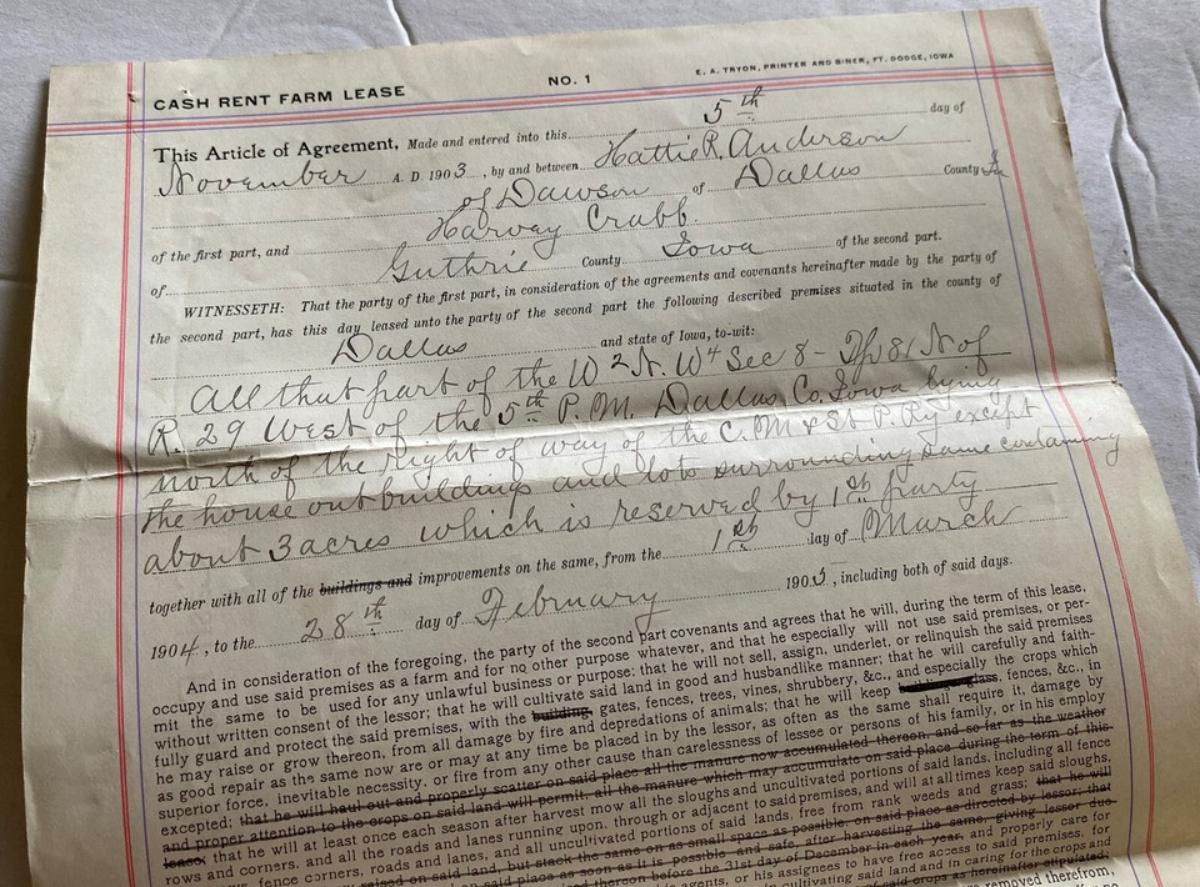 CASH RENT FARM LEASE NO. 1 E. A. TRYON, PRINTER AND BINER, FT. DODGE, IOWA
This Article of Agreement, Made and entered into this 5th day of
November A. D. 1903, by and between Hattie R. Anderson
of Dawson of Dallas County Ia
of the first part, and Harvay Crabb.
of Guthrie County Iowa of the second part.
WITNESSETH: That the party of the first part, in consideration of the agreements and covenants hereinafter made by the party of
the second part, has this day leased unto the party of the second part the following described premises situated in the county of
Dallas and state of Iowa, to-wit:
All that part of the W 2 N. W 4 Sec 8 - Tp 81 N of
R. 29 West of the 5th P. M. Dallas Co. Iowa lying
north of the right of way of the C. M & St P. Ry except
the house outbuildings and lots surrounding same containing
about 3 acres which is reserved by 1st party
together with all of the buildings and improvements on the same, from the 1st day of March
1904, to the 28th day of February 1905, including both of said days.
And in consideration of the foregoing, the party of the second part covenants and agrees that he will, during the term of this lease,
occupy and use said premises as a farm and for no other purpose whatever, and that he especially will not use said premises, or per-
mit the same to be used for any unlawful business or purpose; that he will not sell, assign, underlet, or relinquish the said premises
without written consent of the lessor; that he will cultivate said land in good and husbandlike manner; that he will carefully and faith-
fully guard and protect the said premises, with the building, gates, fences, trees, vines, shrubbery, &c., and especially the crops which
he may raise or grow thereon, from all damage by fire and depredations of animals; that he will keep buildings, glass, fences, &c., in
as good repair as the same now are or may at any time be placed in by the lessor, as often as the same shall require it, damage by
superior force, inevitable necessity, or fire from any other cause than carelessness of lessee or persons of his family, or in his employ
excepted; that he will haul out and properly scatter on said place all the manure now accumulated thereon, and so far as the weather
and proper attention to the crops on said land will permit, all the manure which may accumulate on said place during the term of this
lease; that he will at least once each season after harvest mow all the sloughs and uncultivated portions of said lands, including all fence
rows and corners, and all the roads and lanes running upon, through or adjacent to said premises, and will at all times keep said sloughs,
fence corners, roads and lanes, and all uncultivated portions of said lands, free from rank weeds and grass; that he will
raised on said land, but stack the same on as small space as possible, on said place as directed by lessor; that
said place as soon as it is possible and safe, after harvesting the same, giving lessor due
thereon before the 31st day of December in each year, and properly care for
agents, or his assignees to have free access to said premises, for
cultivating said land and in caring for the crops and
said crops as hereinafter stipulated;
removed therefrom,